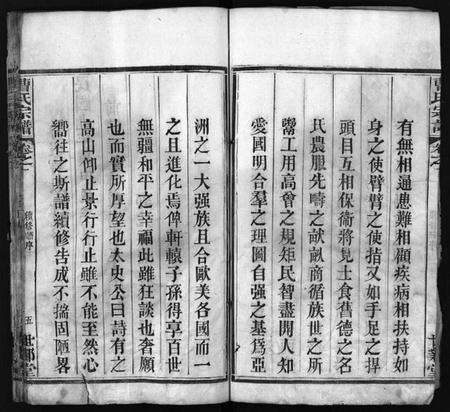 有無相通患難相顧疾病相扶持如
身之使臂臂之使指又如手足之捍
頭目互相保衛將見士食舊德之名
氏農服先疇之畎畝商循族世之所
鬻工用高曾之規矩民智盡開人知
愛國明合羣之理圖自强之基為亞
洲之一大强族且合歐美各國而一
之且進化焉俾軒轅子孫得享百世
無疆和平之幸福此雖狂談也耆願
也而實所厚望也太史公曰詩有之
高山仰止景行行止雖不能至然心
嚮往之斯譜續修告成不揣固陋畧
曹氏宗譜
卷之
五